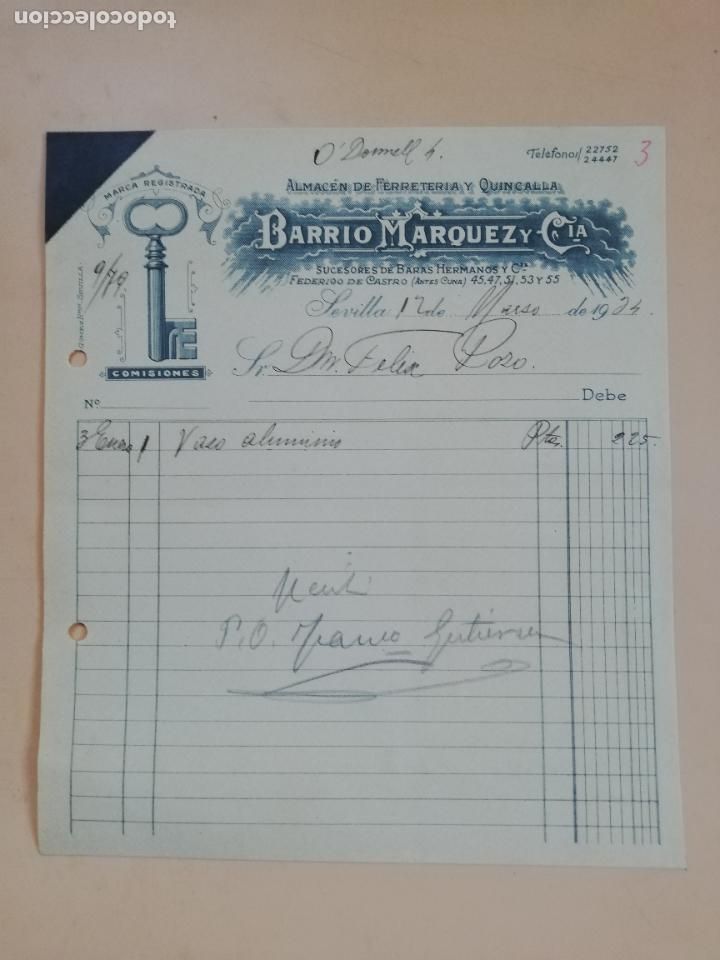 todocoleccion
O'Donnell 4.
Teléfonos 22752
24447
3
MARCA REGISTRADA
ALMACÉN DE FERRETERIA Y QUINCALLA
BARRIO MARQUEZ Y CIA
SUCESORES DE BARAS HERMANOS Y Cía
FEDERICO DE CASTRO (ANTES CUNA) 45, 47, 51, 53 Y 55
9/79
Sevilla 12 de Marso de 1934
COMISIONES
Sr. Dn. Felix Poso.
Nº
Debe
3 Enero 1 Vaso aluminio Ptas. 2 25.
Recibí
P.O. Gutierrez